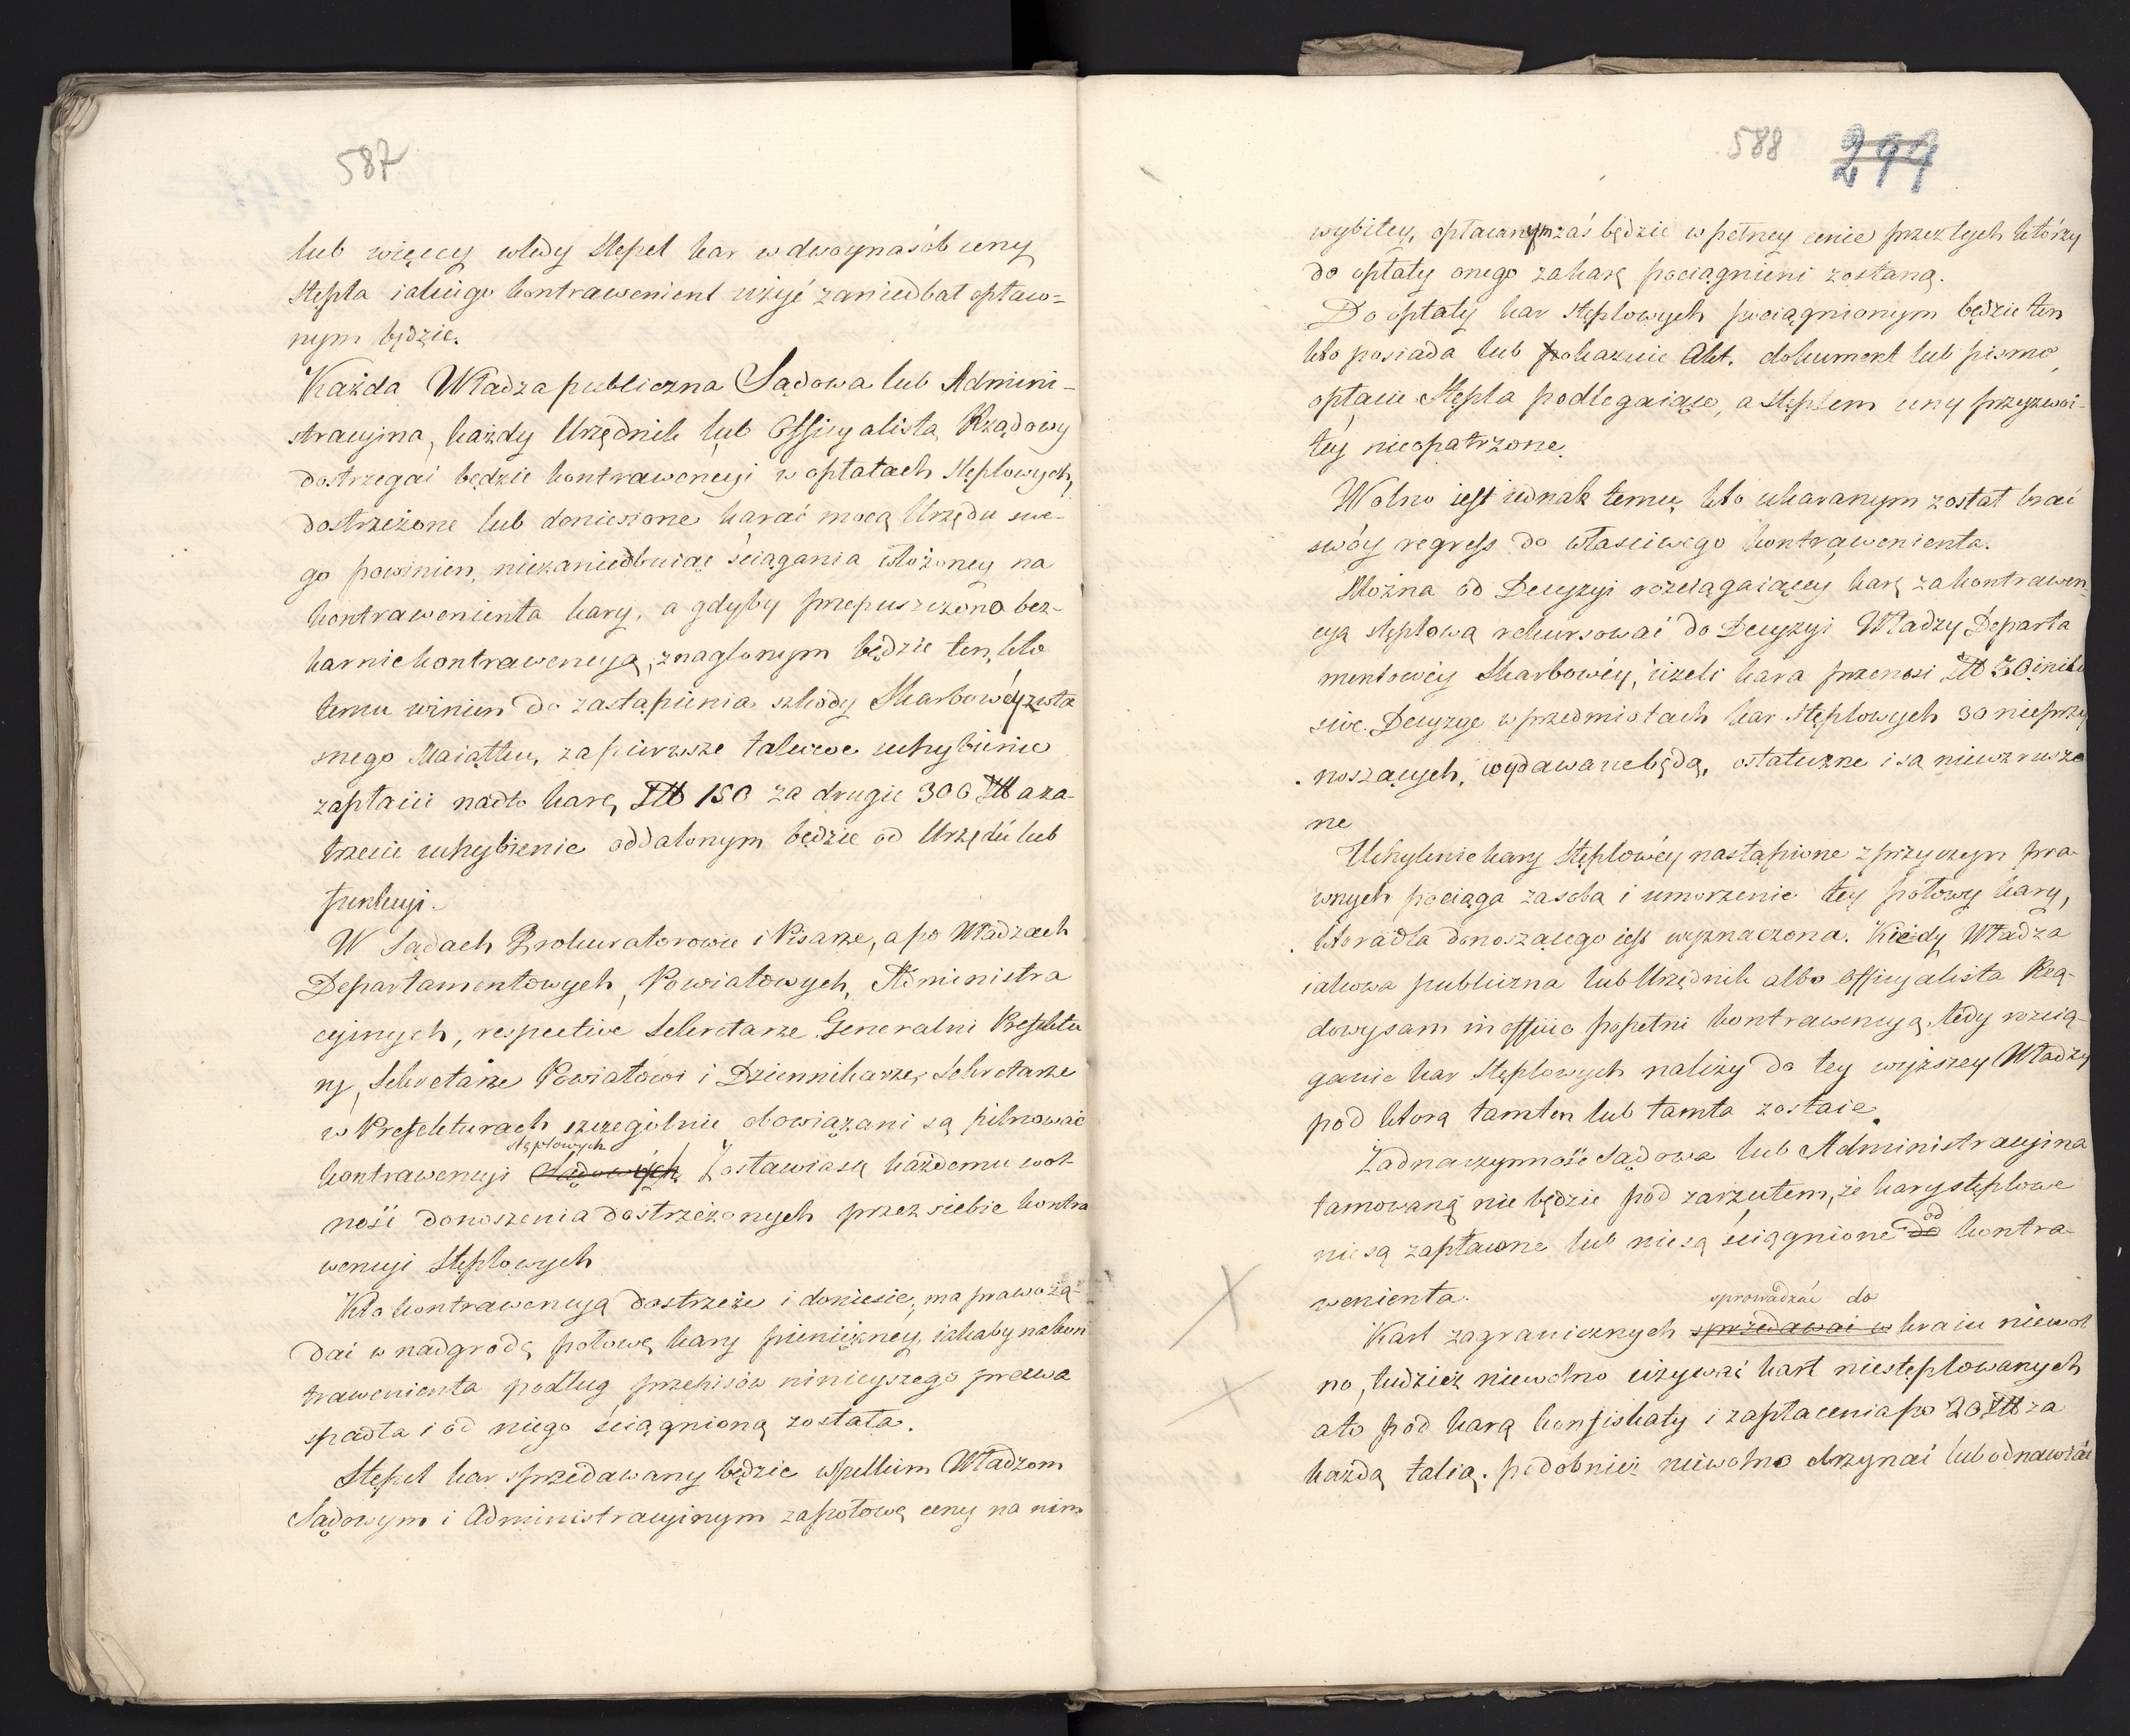 587
lub więcey wtedy Stępel kar w dwoynasób ceny
Stępla iakiego kontrawenient użyć zaniedbał opłaco=
nym będzie.
Każda Władza publiczna Sądowa lub Admini-
stracyina, każdy Urzędnik lub Officyalista Rządowy
dostrzegać będzie kontrawencyi w opłatach Stęplowych,
dostrzeżone lub doniesione karać mocą Urzędu swe-
go powinien, niezaniedbuiąc ściągania włożoney na
kontrawenienta kary, a gdyby przepuszczono bez-
karnie kontrawencyą, znaglonym będzie ten, kto
temu winien do zastąpienia szkody Skarbowéy z wła
snego Maiątku, za pierwsze takowe uchybienie
zapłaci nadto karę Złł 150 za drugie 300 Złł a za-
trzecie uchybienie oddalonym będzie od Urzędu lub
funkcyi.
W Sądach Prokuratorowie i Pisarze, a po Władzach
Departamentowych, Powiatowych, Administra
cyinych, respective Sekretarze Generalni Prefektu
ry, Sekretarze Powiatowi i Dziennikarze, Sekretarze
w Prefekturach szczególnie obowiązani są pilnować
stęplowych
kontrawencyi Sądowych Zostawia się każdemu wol-
ność donoszenia dostrzeżonych przez siebie kontra
wencyi Stęplowych
Kto kontrawencyą dostrzeże i doniesie, ma prawo żą-
dać w nadgrodę połowę kary pieniężnéy, iakaby na kon
trawenienta podług przepisów ninieyszego prawa
spadła i od niego ściągnioną została.
Stępel kar sprzedawany będzie wszelkim Władzom
Sądowym i Administracyinym za połowę ceny na nim
588 299
wybitey, opłaconym zaś będzie w pełney cenie przez tych którzy
do opłaty onego za karę pociągnieni zostaną.
Do opłaty kar Stęplowych pociągnionym będzie ten
kto posiada lub pokazuie Akt. dokument lub pismo,
opłacie Stępla podlegaiące, a Stęplem ceny przyzwoi-
tey nieopatrzone.
Wolno iest iednak temu kto ukaranym został brać
swóy regress do właściwego kontrawenienta.
Można od Decyzyi rozciągaiącey karę za kontrawen-
cyą stęplową rekursować do Decyzyi Władzy Departa
mentowéy Skarbowéy, ieżeli kara przenosi Złł 30 inklu
sive. Decyzye w przedmiotach kar Stęplowych 30 nieprze
noszących, wydawane będą, ostateczne i są niewzruszo
ne
Uchylenie kary Stęplowéy nastąpione z przyczyn pra-
wnych pociąga za sobą i umorzenie tey połowy kary,
która dla donoszącego iest wyznaczona. Kiedy Władza
iakowa publiczna lub Urzędnik albo Officyalista Rzą-
dowy sam in officio popełni kontrawencyą, tedy rozcią-
ganie kar Stęplowych należy do tey wyższey Władzy
pod którą tamten lub tamta zostaie.
Żadna czynność Sądowa lub Administracyina
tamowaną nie będzie pod zarzutem, że kary stęplowe
nie są zapłacone lub nie są ściągnione do od kontra-
wenienta.
sprowadzać do
Kart zagranicznych sprzedawać w kraiu niewol
no, tudzież niewolno używać kart niestęplowanych
a to pod karą konfiskaty i zapłacenia po 20 Złł za
każdą talią. podobnież niewolno obrzynać lub odnawiać